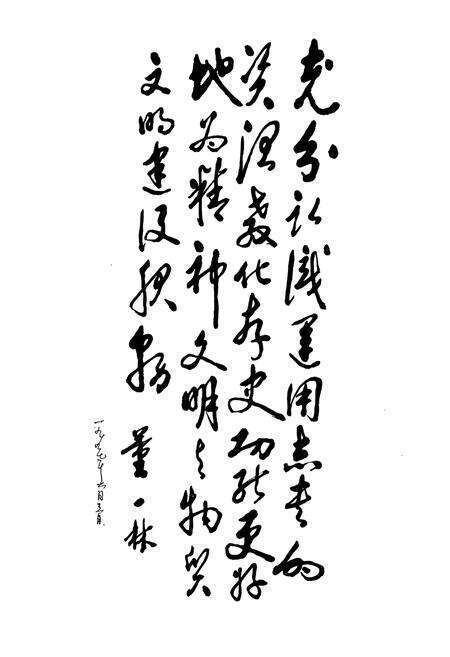 充分认识运用志书的
资治教化存史功能更好
地为精神文明与物质
文明建设服务
董一林
一九八九年六月日